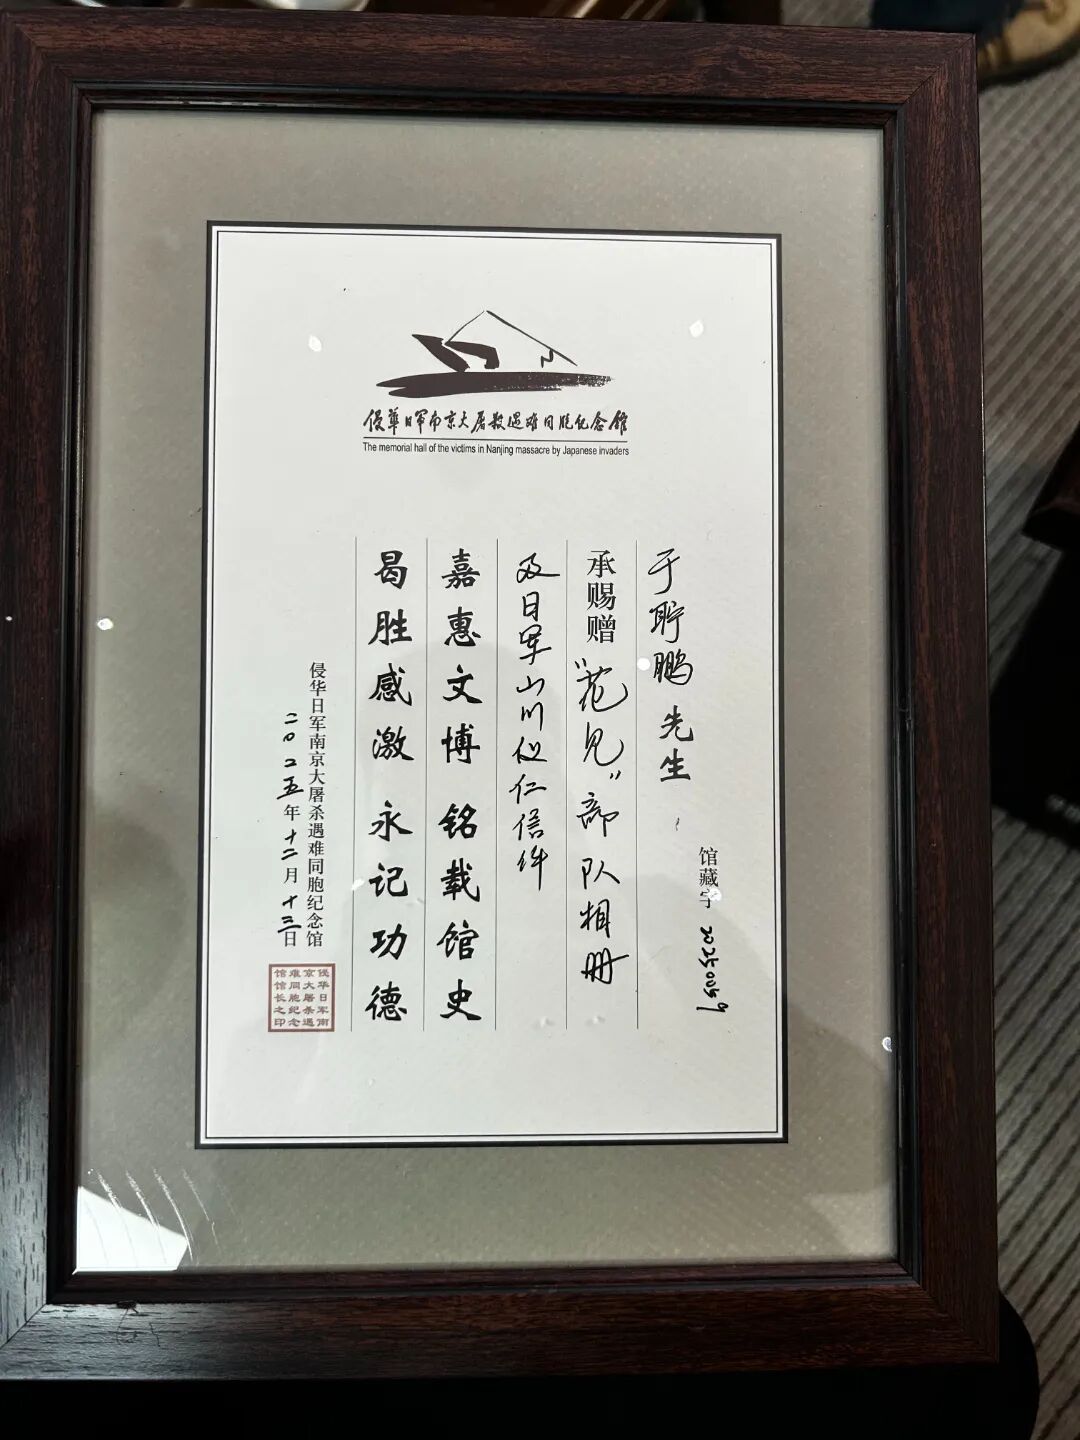 侵華日軍南京大屠殺遇难同胞纪念館
The memorial hall of the victims in Nanjing massacre by Japanese invaders
馆藏字 20250059
于貯鹏 先生
承赐赠“花见”部队相册
及日军山川仪仁信件
嘉惠文博 铭载馆史
曷胜感激 永记功德
侵华日军南京大屠杀遇难同胞纪念馆
二〇二五年十二月十三日
侵华日军南
京大屠杀遇
难同胞纪念
馆馆长之印